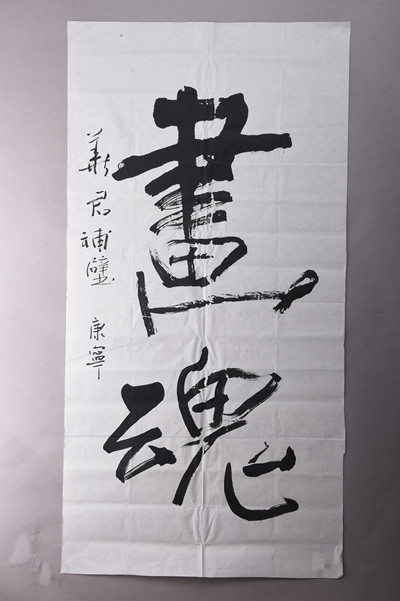 畫魂
義君補壁
康寧